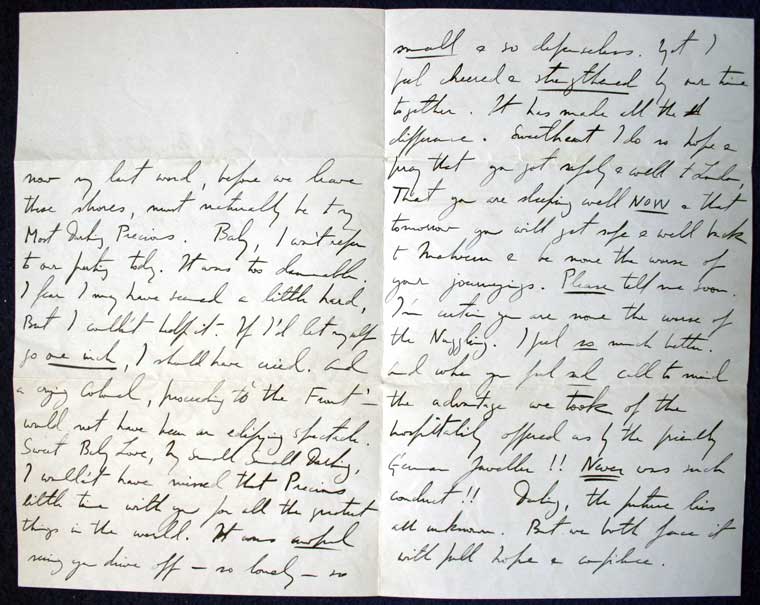 now my last word, before we leave
these shores, must naturally be to my
Most Darling Precious. Baby, I won't refer
to our parting today. It was too damnable.
I fear I may have seemed a little hard,
But I couldn't help it. If I'd let myself
go one inch, I should have cried. And
a crying Colonel, proceeding to 'the Front' –
would not have been an edifying spectacle.
Sweet Baby Love, my small small Darling,
I wouldn't have missed that Precious
little time with you for all the greatest
things in the world. It was awful
seeing you drive off – so lonely – so
small & so defenseless. Yet I
feel cheered & strengthened by our time
together. It has made all the
difference. Sweetheart I do so hope &
pray that you got safely & well to London,
That you are sleeping well NOW & that
tomorrow you will get safe & well back
to Malvern & be none the worse of
your journeyings. Please tell me soon.
I'm certain you are none the worse of
the Nuggling. I feel so much better.
And when you feel sad call to mind
the advantage we took of the
hospitality offered us by the friendly
German Jeweller!! Never was such
conduct!! Darling, the future lies
all unknown. But we both face it
with full hope & confidence.